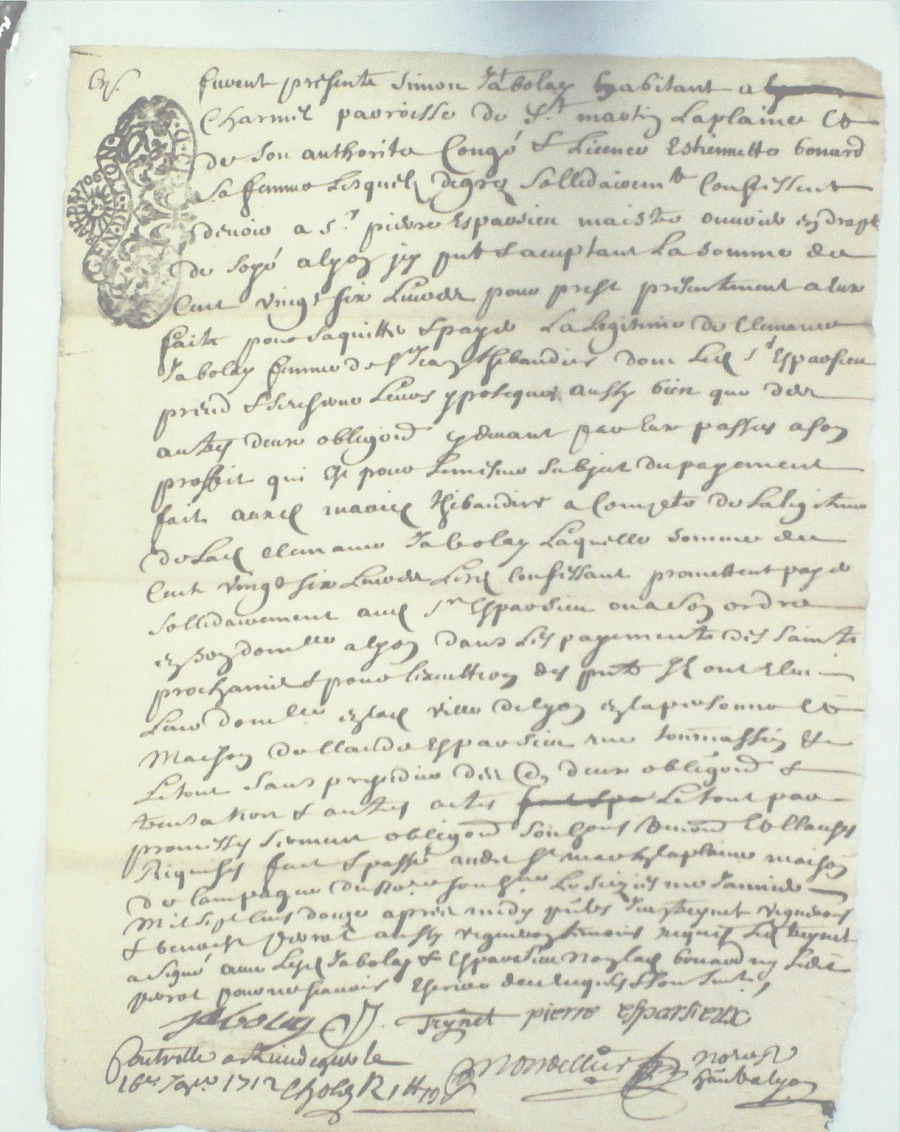 furent présents Simon Jaboley habitant a
Charmil parroisse de St martin Laplaine et
de son authorité Congé & Licence Estiennette bonard
Sa femme Lesquels de gré Sollidairemt Confessent
devoir a Sr pierre Esparsieu maistre ouvrier en drapt
de soye a lyon icy pnt & aceptant La Somme de
Cent vingt six Livres pour prest présentment a eux
fait pour saquitter & payer La Legitime de Clemance
Jaboley femme de Sr Jean thibaudier dont Led Sr Esparsieu
prend & Leurs ypoteques aussy bien que des
autres deux obligõns cydevant par eux passées a son
proffit qui est pour Le mesme subjet du payement
fait aud thibaudier a Compte de La legitime
de Lad clemance Jaboley Laquelle somme de
Cent vingt six Livres Lesd Confessant promettent payer
sollidairement aud Sr Esparsieu ou a son ordre
en son domlle a lyon dans Les payements des Saints
prochains & pour Lexecution des pntes Ils ont eleu
Leur domlle en lad ville de lyon en la personne et
Maison de Claude Esparsieu rue tommassin &
Le tout sans prejudice des d deux obligõns &
autres actes Le tout par
promesses serment obligõns Soubzons renonõn & Clauses
Requises fait & passé audit St martin Laplaine maison
de Campagne du nore soubznе Le seizieme Janvier
Mil sept cents douze apres midy pntes Jean teynet vigneron
& benoist perrot aussy vigneron temoins requis Led teynet
a signé avec Lesd Jaboley & Esparsieu non lad bonard ny Ledit
perrot pour ne scavoir Escrire de ce enquis & sommés
Jaboley J. Teynet pierre esparsieux
Controllé a le
16e Janr 1712
Mondellier nore